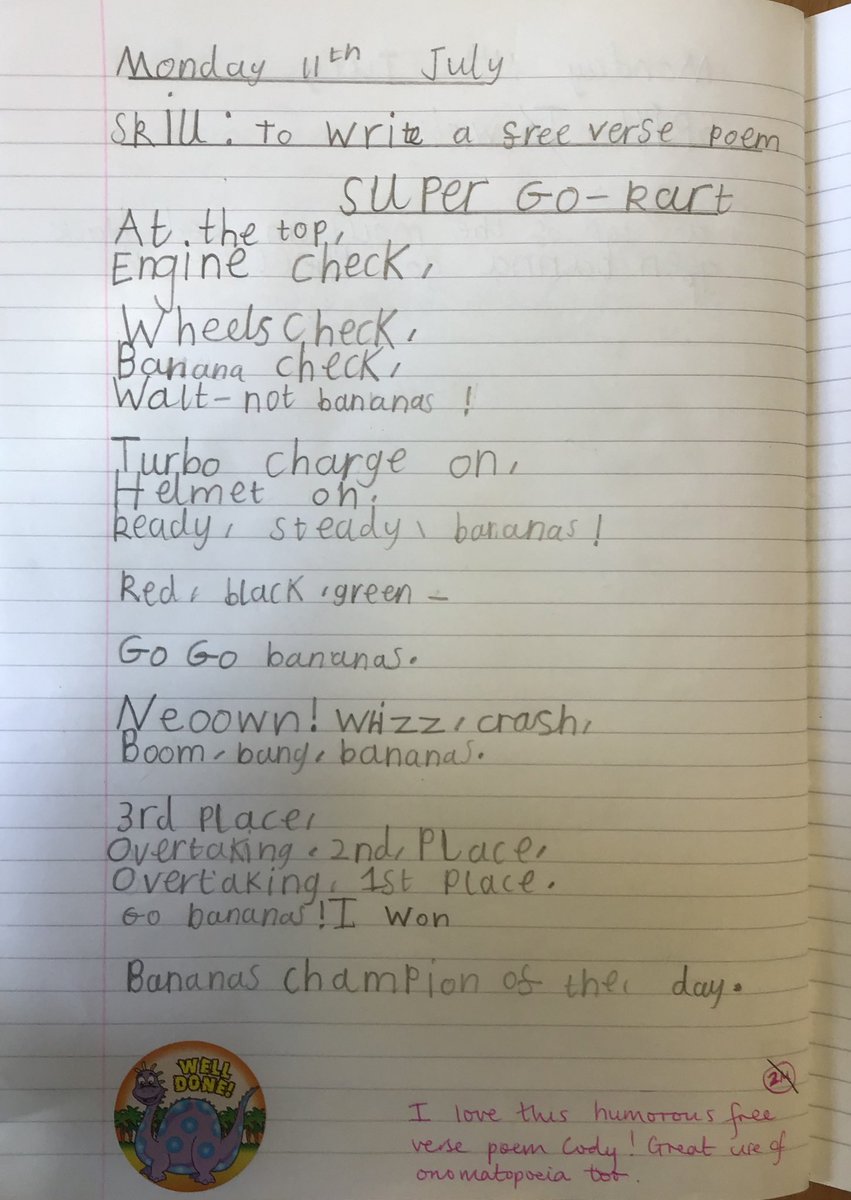 Monday 11th July
Skill: to write a free verse poem
Super Go-kart
At the top,
Engine check,
Wheels check,
Banana check,
Wait- not bananas !
Turbo charge on,
Helmet on,
Ready, steady, bananas!
Red, black, green -
Go Go bananas.
Neoown! Whizz, crash,
Boom, bang, bananas.
3rd place,
Overtaking, 2nd, Place,
Overtaking, 1st place.
Go bananas! I won
Bananas champion of the, day.
WELL
DONE!
2M
I love this humorous free
verse poem Cody! Great use of
onomatopoeia too.